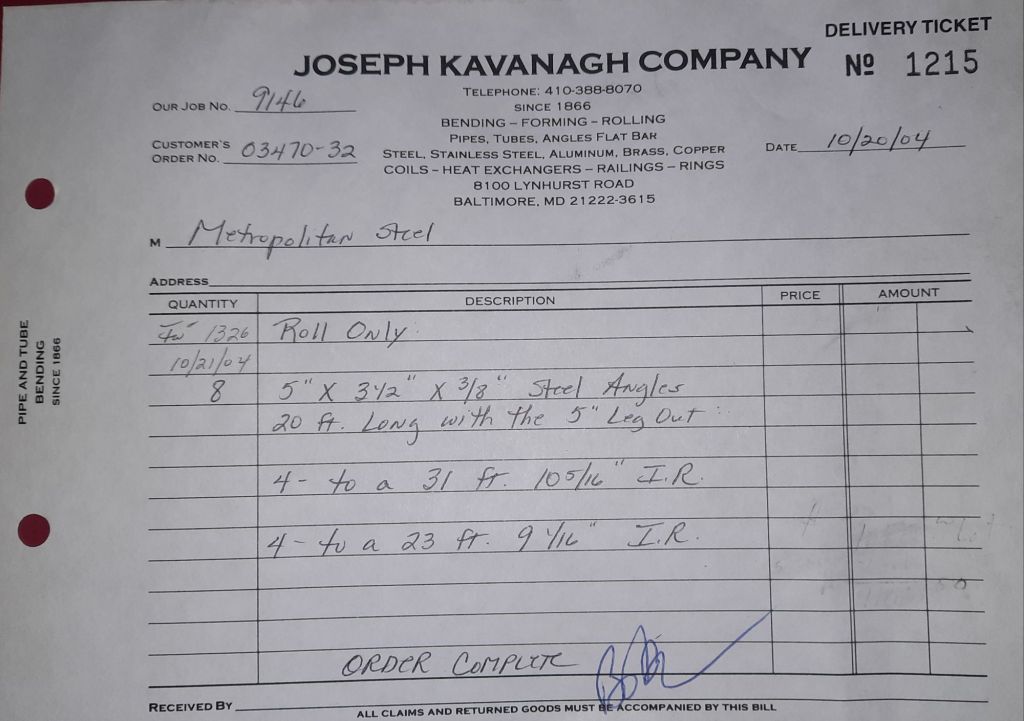 DELIVERY TICKET
JOSEPH KAVANAGH COMPANY
Nº 1215
TELEPHONE: 410-388-8070
SINCE 1866
BENDING – FORMING – ROLLING
PIPES, TUBES, ANGLES FLAT BAR
STEEL, STAINLESS STEEL, ALUMINUM, BRASS, COPPER
COILS – HEAT EXCHANGERS – RAILINGS – RINGS
8100 LYNHURST ROAD
BALTIMORE, MD 21222-3615
OUR JOB NO. 9146
CUSTOMER'S
ORDER NO. 03470-32
DATE 10/20/04
M Metropolitan Steel
ADDRESS
QUANTITY DESCRIPTION PRICE AMOUNT
1326 Roll Only
10/21/04
8 5" X 3 1/2" X 3/8" Steel Angles
20 ft. Long with the 5" Leg Out
4 - to a 31 ft. 10 5/16" I.R.
4 - to a 23 ft. 9 1/16" I.R.
ORDER COMPLETE
RECEIVED BY
ALL CLAIMS AND RETURNED GOODS MUST BE ACCOMPANIED BY THIS BILL
PIPE AND TUBE
BENDING
SINCE 1866